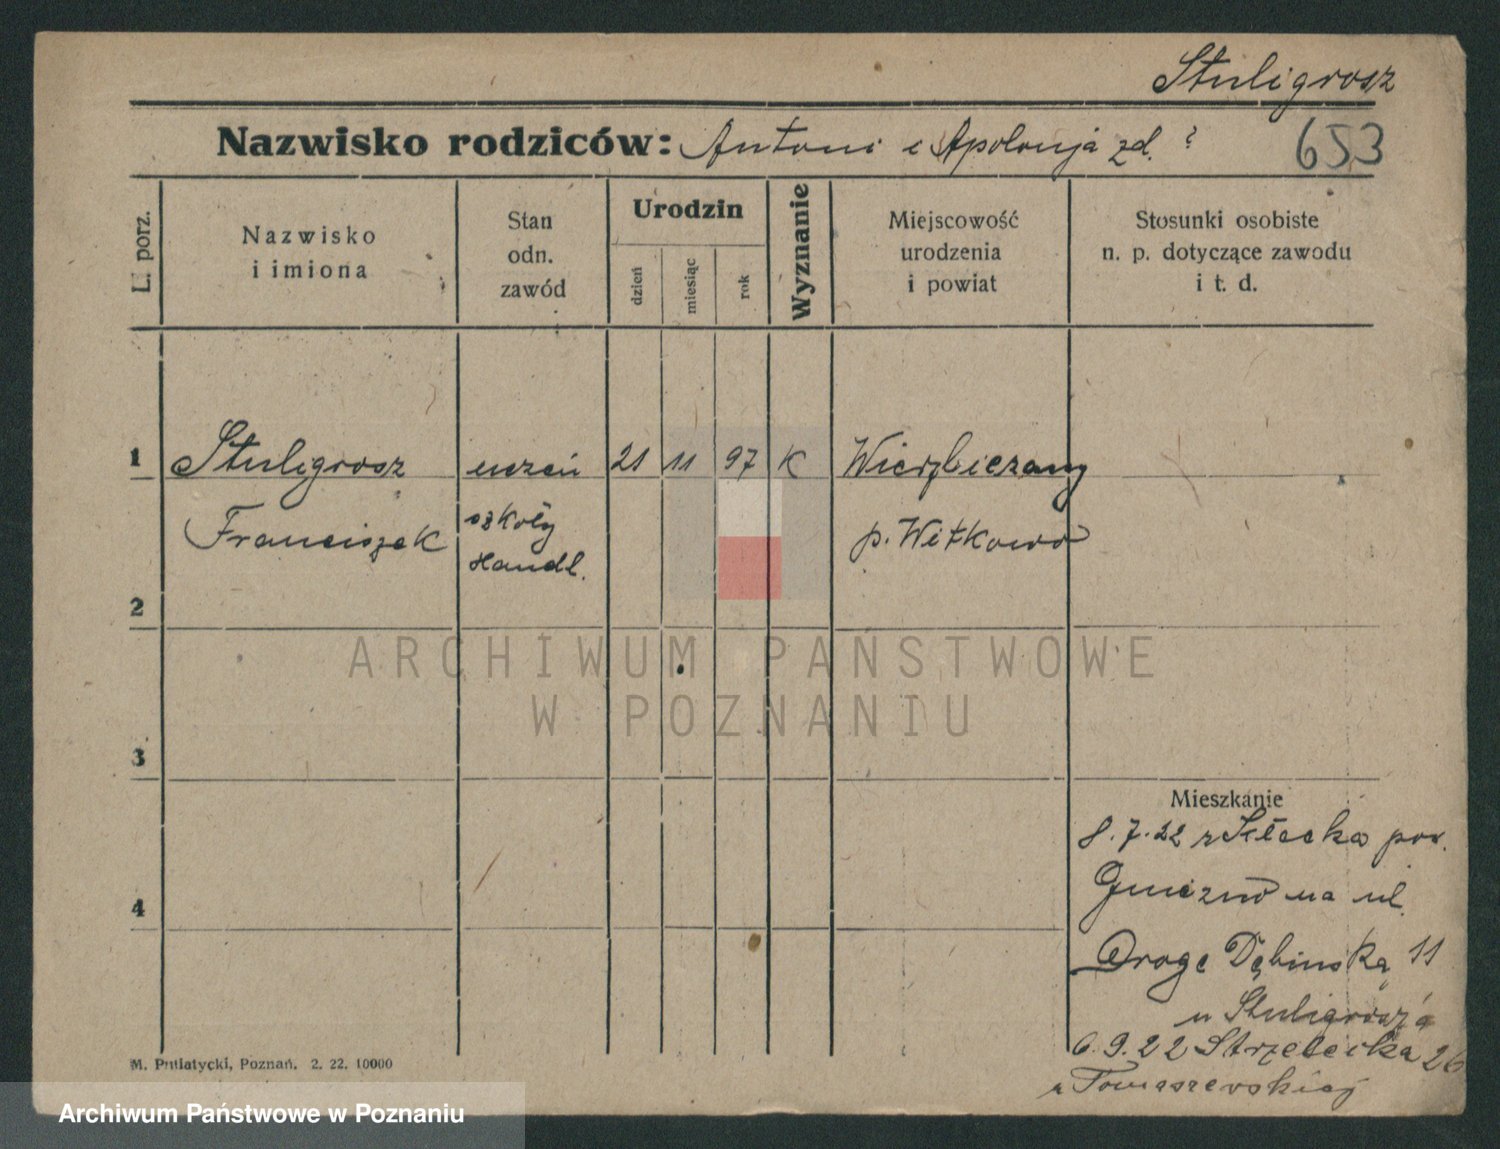 Stuligrosz
Nazwisko rodziców: Antoni i Apolonja zd. ?
653
L. porz.
Nazwisko
i imiona
Stan
odn.
zawód
Urodzin
dzień
miesiąc
rok
Wyznanie
Miejscowość
urodzenia
i powiat
Stosunki osobiste
n. p. dotyczące zawodu
i t. d.
1 Stuligrosz uczeń 21 11 97 K Wierzbiczany
Franciszek szkoły p. Witkowo
Handl.
2
ARCHIWUM PAŃSTWOWE
W POZNANIU
3
Mieszkanie
8.7.22 z Kłecka pow.
Gniezno na ul.
4
Droge Dębinską 11
u Stuligrosz'a
6.9.22 Strzelecka 26
u Tomaszewskiej
M. Putiatycki, Poznań. 2. 22. 10000
Archiwum Państwowe w Poznaniu